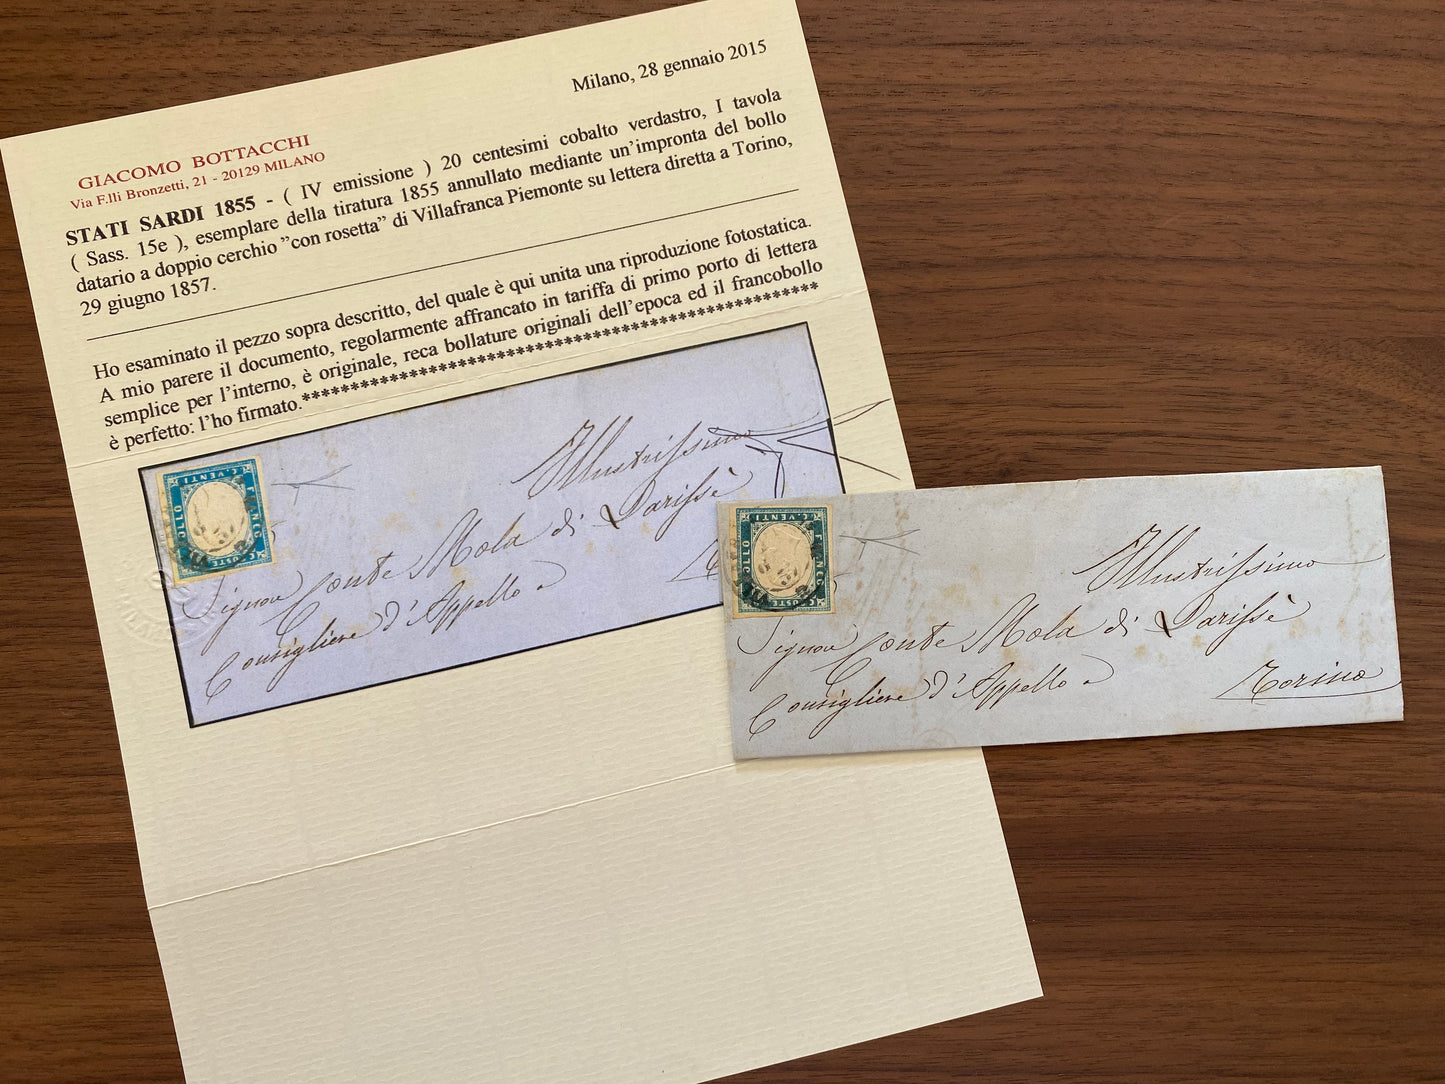 Milano, 28 gennaio 2015
GIACOMO BOTTACCHI
Via F.lli Bronzetti, 21 - 20129 MILANO
STATI SARDI 1855 - ( IV emissione ) 20 centesimi cobalto verdastro, I tavola
( Sass. 15e ), esemplare della tiratura 1855 annullato mediante un'impronta del bollo
datario a doppio cerchio "con rosetta" di Villafranca Piemonte su lettera diretta a Torino,
29 giugno 1857.
Ho esaminato il pezzo sopra descritto, del quale è qui unita una riproduzione fotostatica.
A mio parere il documento, regolarmente affrancato in tariffa di primo porto di lettera
semplice per l'interno, è originale, reca bollature originali dell'epoca ed il francobollo
è perfetto: l'ho firmato.************************************************
C. VENTI
FRANCO
BOLLO
C. POSTE
Illustrissimo
Signor Conte Mola di Larissè
Consigliere d'Appello a
C. VENTI
FRANCO
BOLLO
C. POSTE
Illustrissimo
Signor Conte Mola di Larissè
Consigliere d'Appello a
Torino